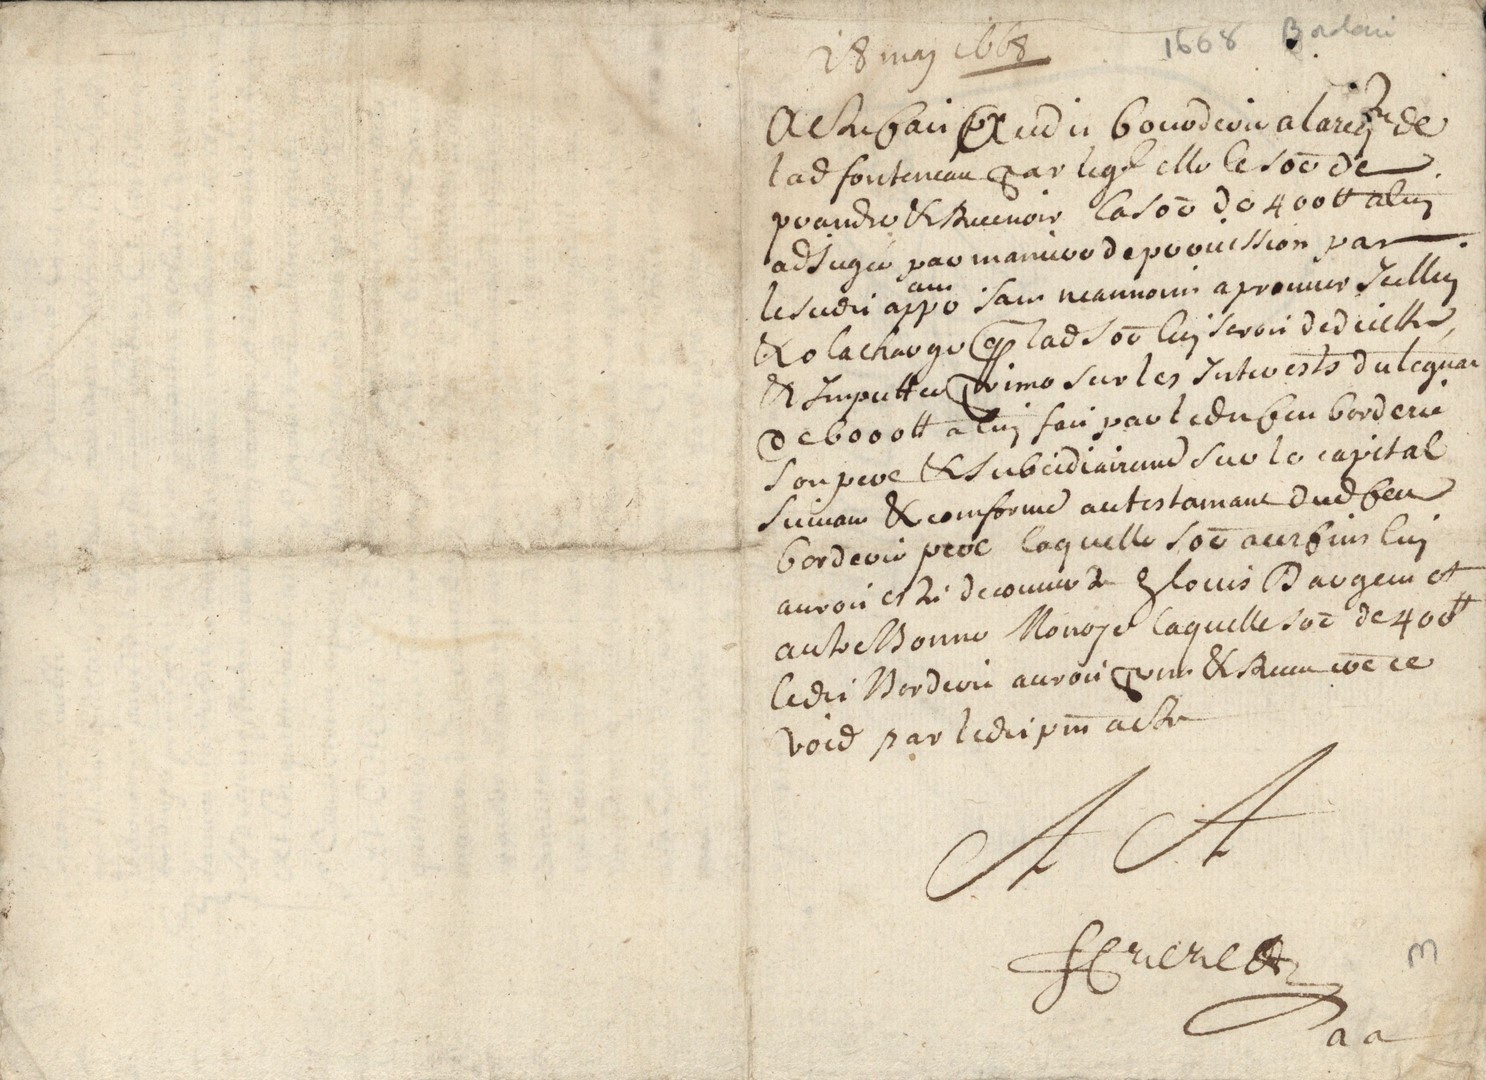 28 may 1668
1668 Borderie
Acte fait dudit bourderie a la reqte de
lad fonteneau par lequel elle le soe de
prandre & Recevoir la soe de 400tt a luy
adJugée par maniere de provission par
lesusdit appo sans neanmoins aprouver Icelluy
& a la charge q lad soe luy seroit deduitte
& Imputtée primo sur les Interests du legat
de 6000tt a luy fait par ledit feu borderie
son pere & subcidiairemt sur le capital
suivant & conformt au testamant dud feu
borderie pere laquelle soe aux fins luy
auroit esté decouverte louis Dargent et
autre Bonne Monoye laquelle soe de 400tt
ledit Borderie auroit prins & Receu coe ce
void par ledit pnt acte
A A
a a
M